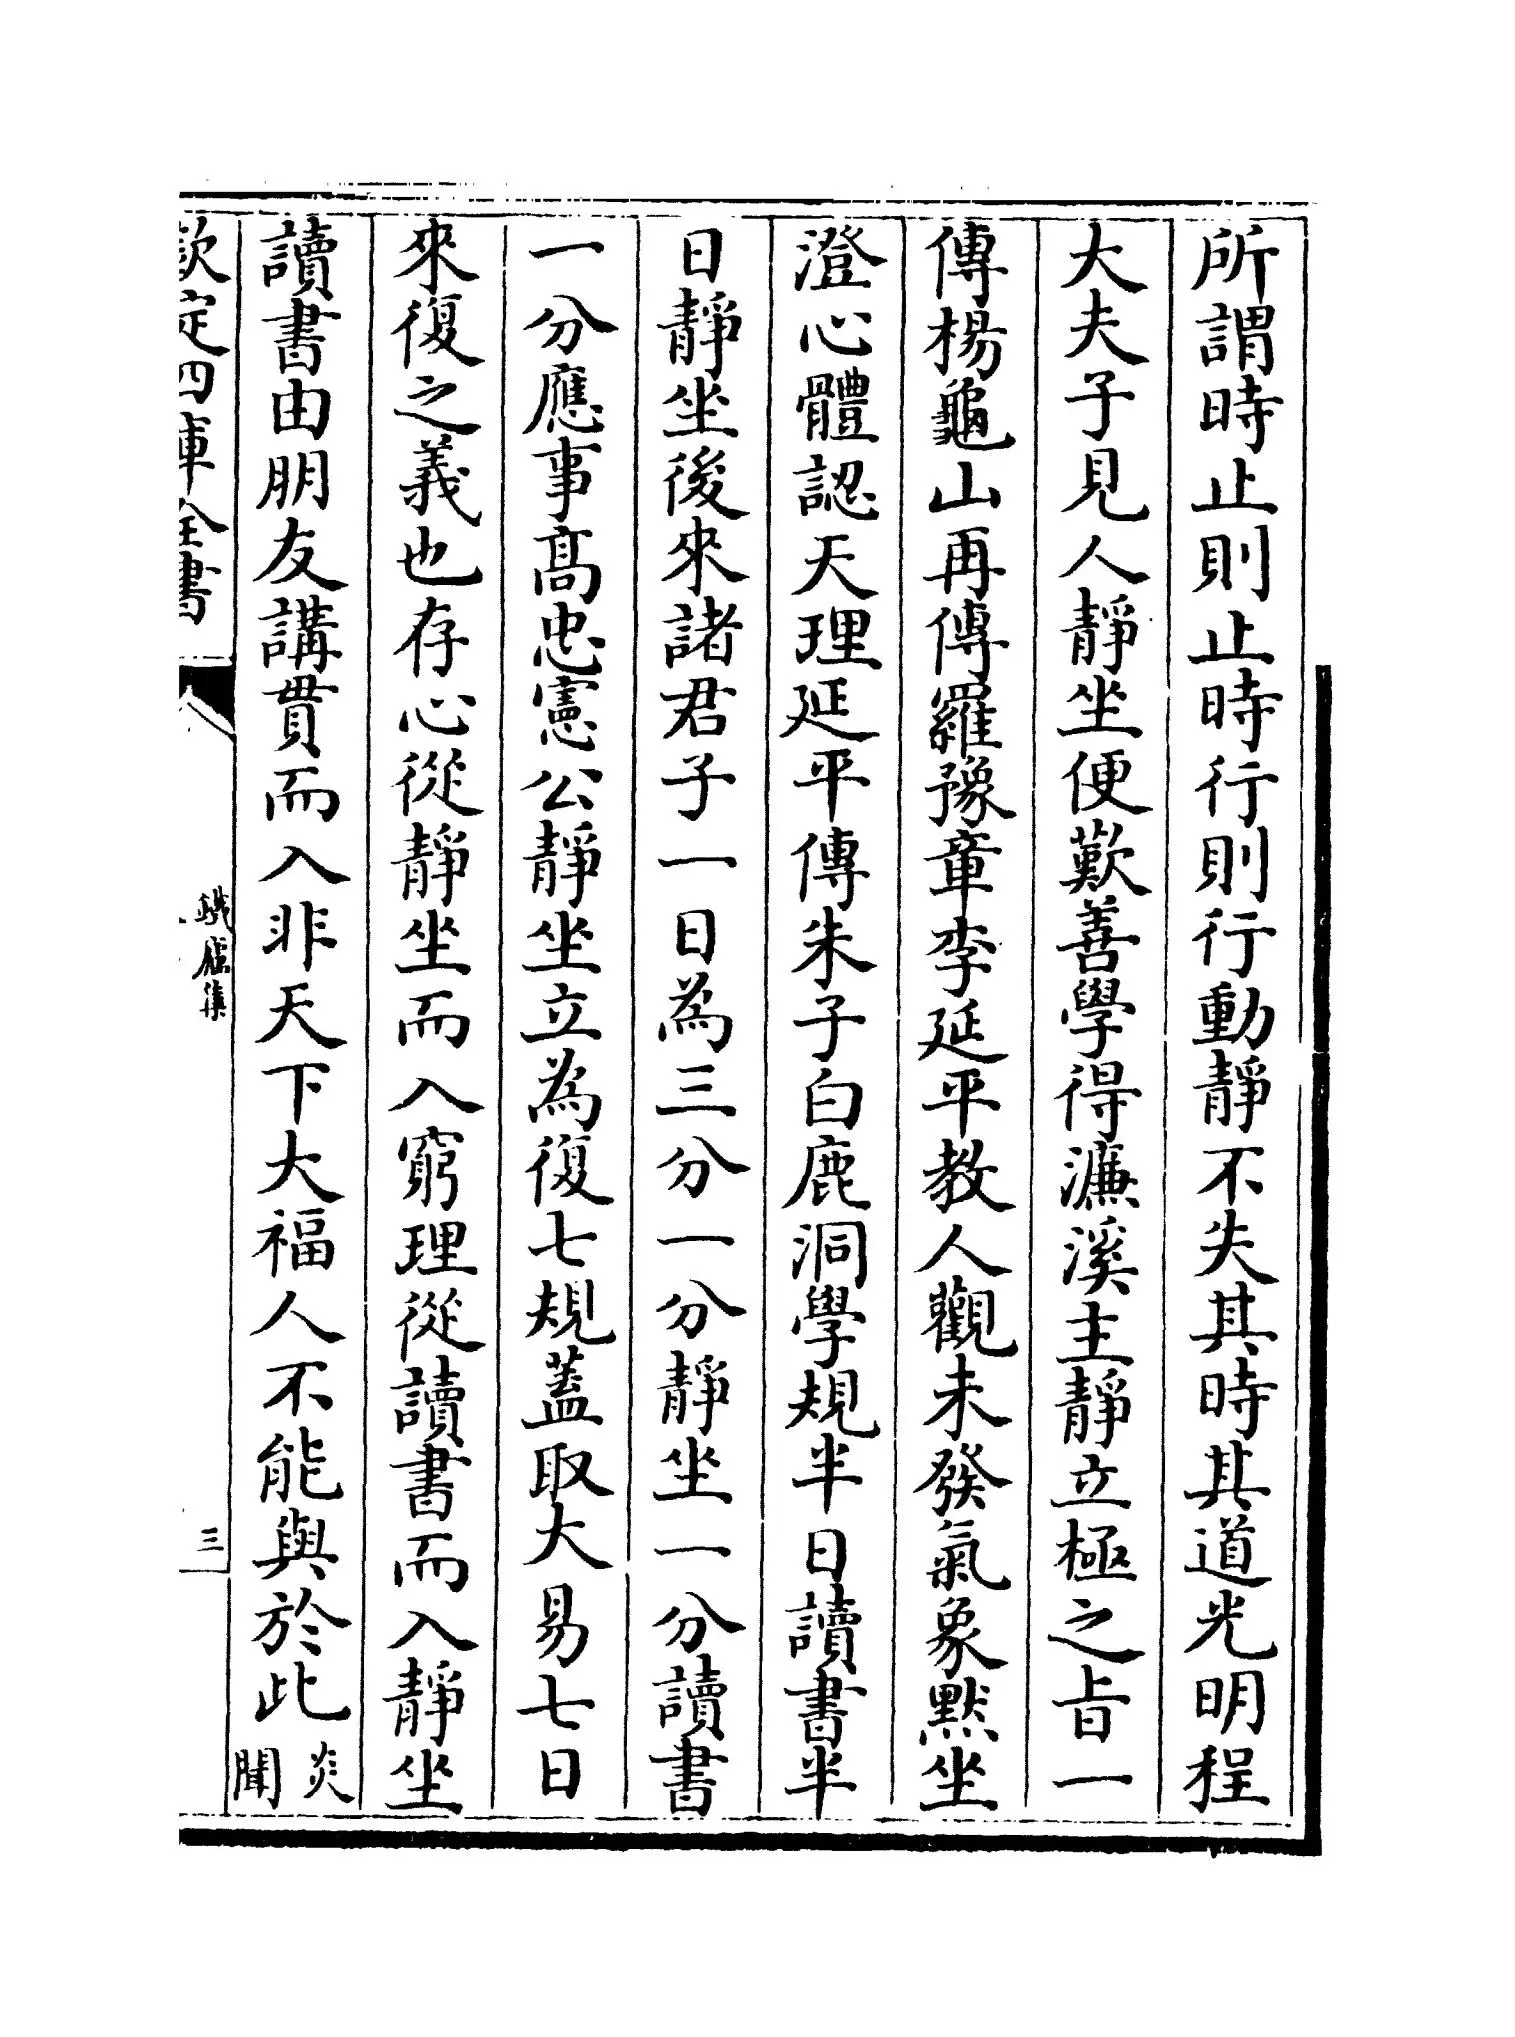 所謂時止則止時行則行動靜不失其時其道光明程
大夫子見人靜坐便歎善學得濂溪主靜立極之㫖一
傳楊龜山再傳羅豫章李延平教人觀未發氣象黙坐
澄心體認天理延平傳朱子白鹿洞學規半日讀書半
日靜坐後來諸君子一日為三分一分靜坐一分讀書
一分應事髙忠憲公靜坐立為復七規蓋取大易七日
來復之義也存心從靜坐而入窮理從讀書而入靜坐
讀書由朋友講貫而入非天下大福人不能與於此炎
聞
欽定四庫全書
集
三